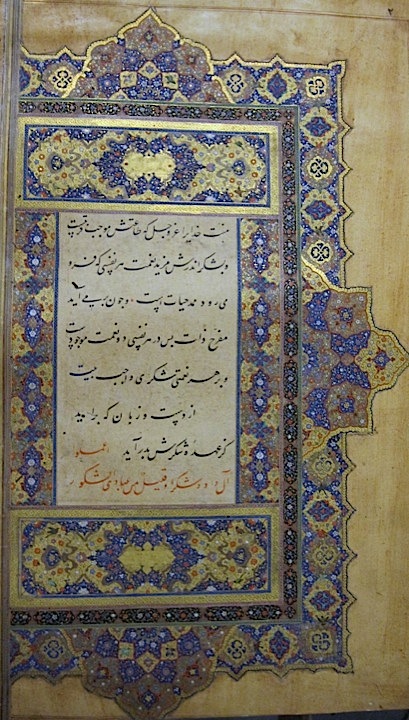 منت خدایرا عز و جل که طاعتش موجب قربتست
و بشکر اندرش مزید نعمت هر نفسی که فرو
می رود ممد حیات است و چون بر می آید
مفرح ذات پس در هر نفسی دو نعمت موجودست
و بر هر نعمتی شکری واجب بیت
از دست و زبان که برآید
کز عهدهٔ شکرش بدر آید اعملوا
آل داود شکرا و قلیل من عبادی الشکور